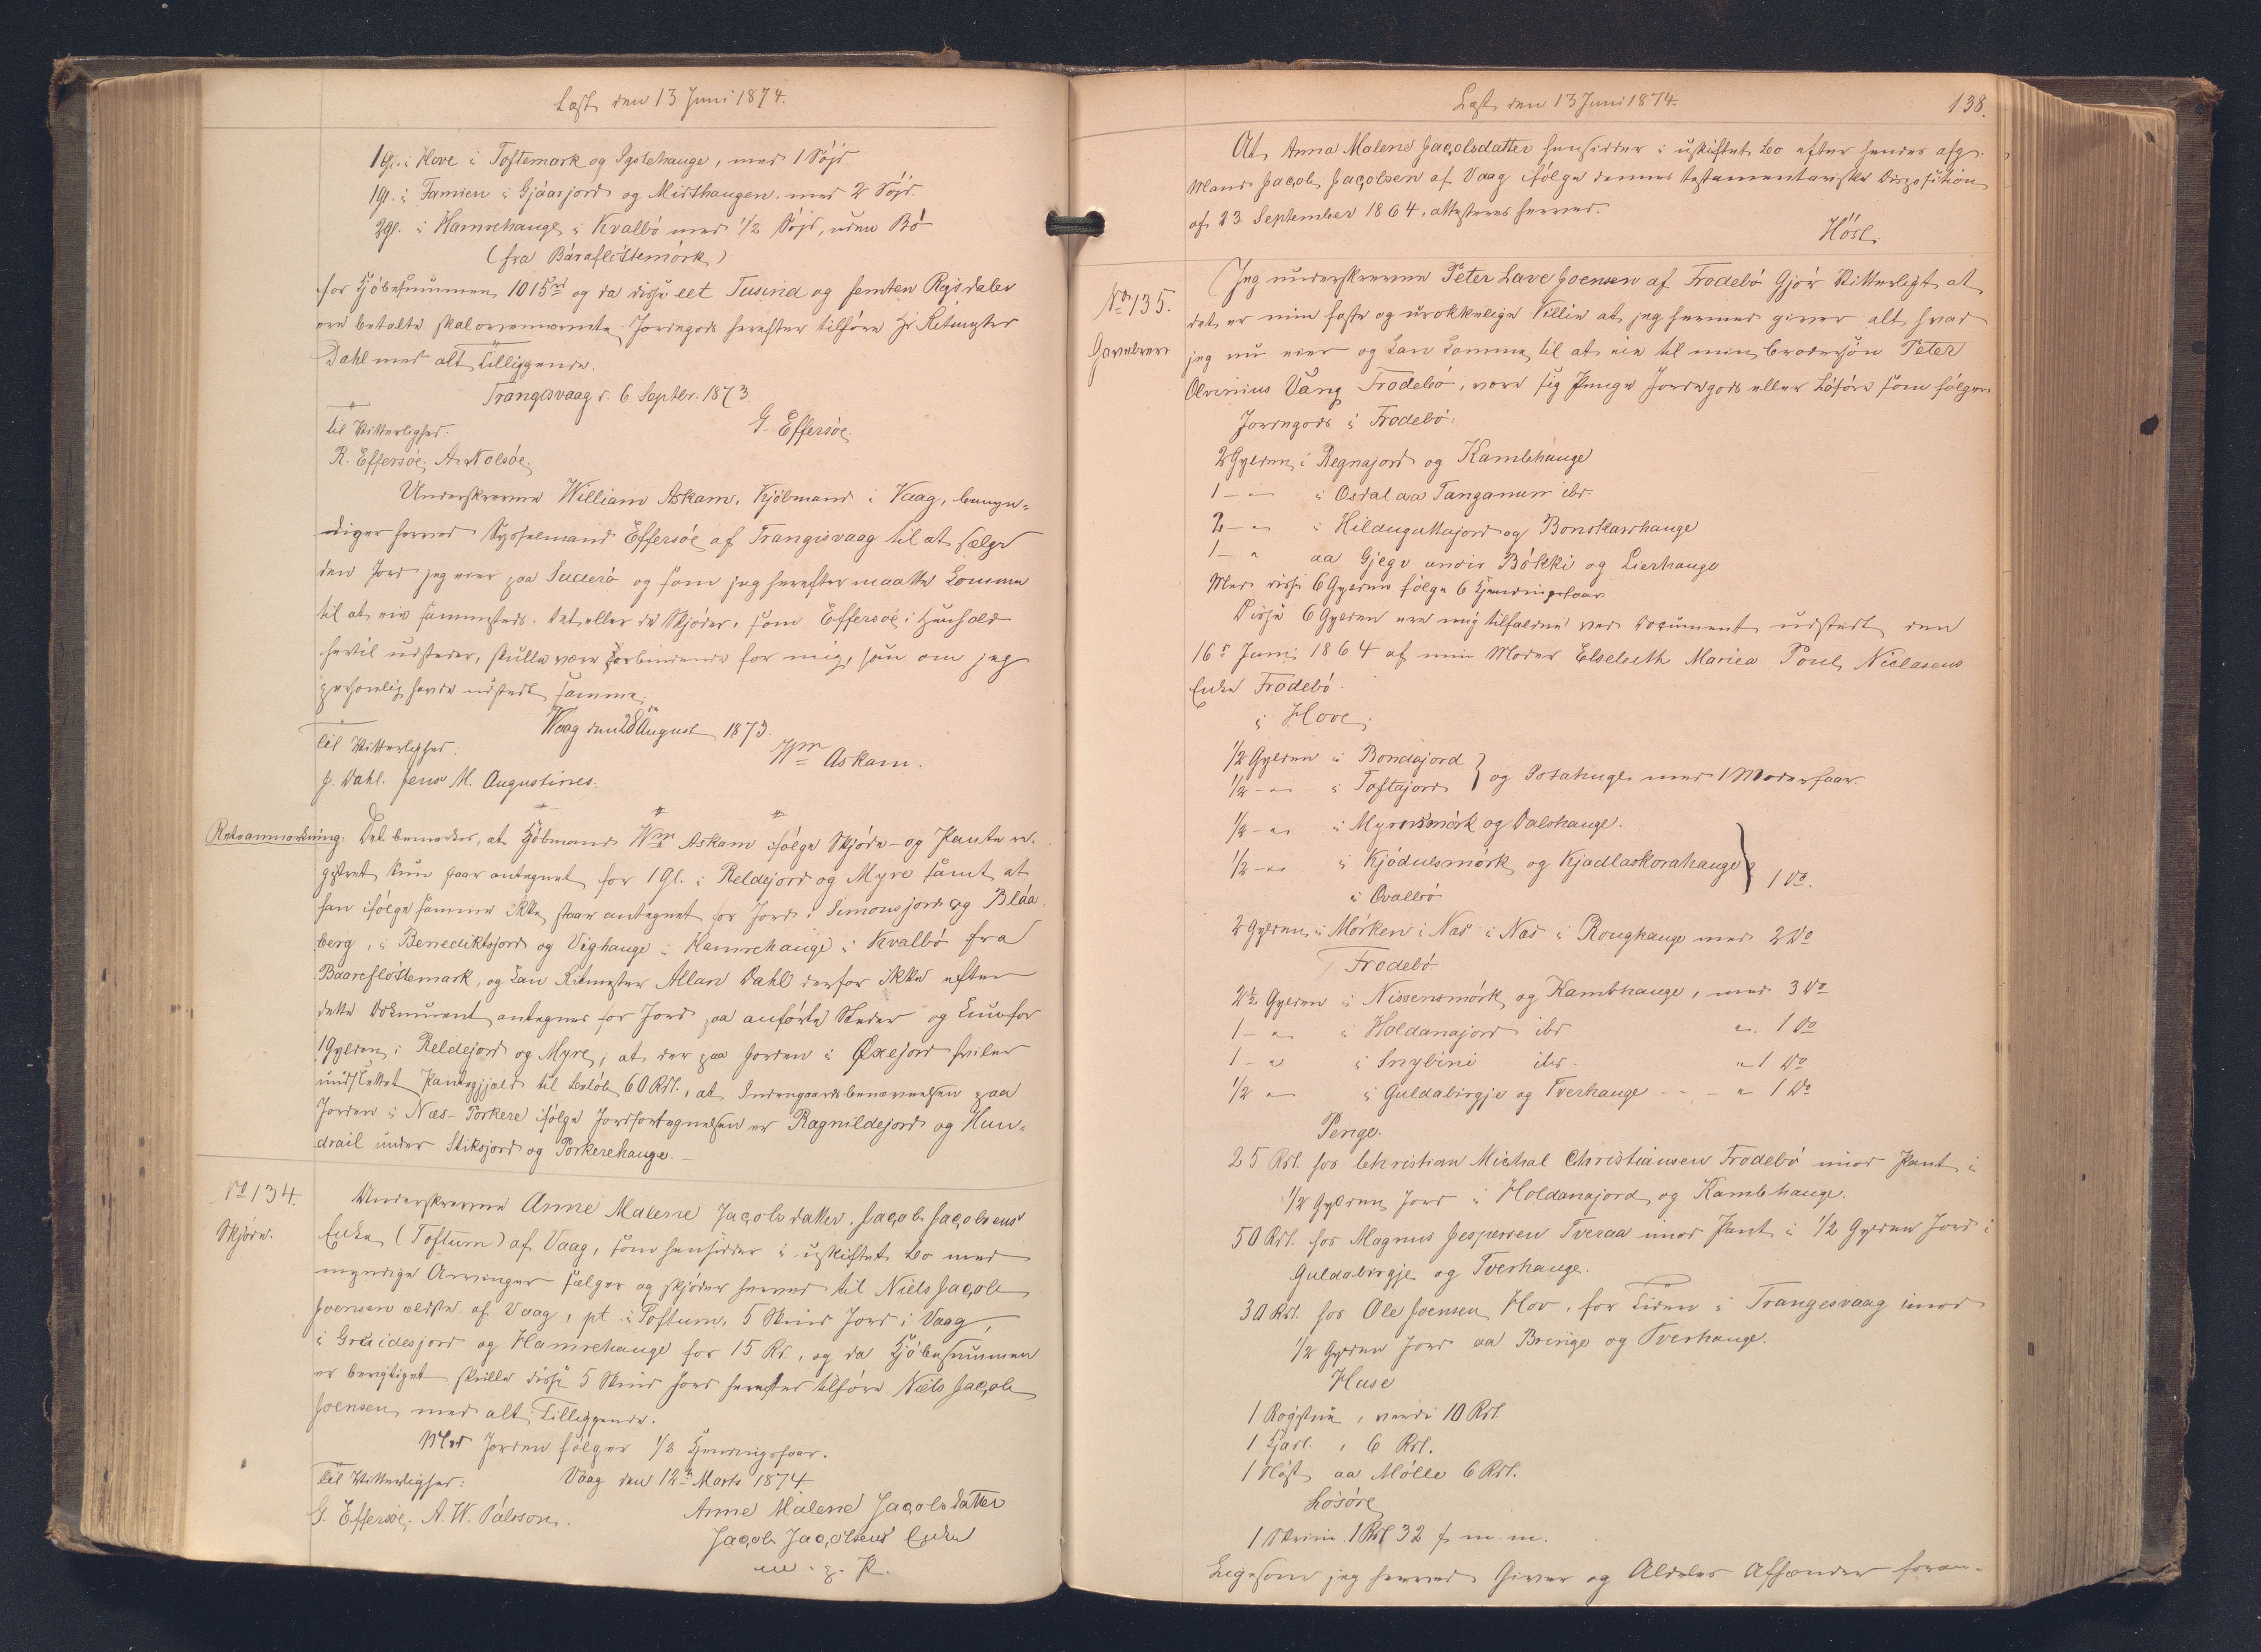 Læst den 13 Juni 1874.
1 Gl. i Hove i Toftemark og Egslehauge, med 1 Söjd
1 Gl. i Famien i Gjáarjord og Midthaugen med 2 Söjd.
2 Gl. i Hamrehauge i Kvalbö med 1/2 Söjd, uden Bö
(fra Báraflöttemörk)
for Kjöbesummen 1015 rd og da disse eet Tusind og femten Rigsdaler
ere betalte skal ovennævnte Jordegods herefter tilhöre Hr. Ritmester
Dahl med alt Tilliggende.
Trangisvaag d. 6 Septbr. 1873.
G. Effersöe.
Til Vitterlighed:
R. Effersöe. A. Nolsöe.
Underskrevne William Askam, Kjöbmand i Vaag, bemyn-
diger herved Sysselmand Effersöe af Trangisvaag til at sælge
den Jord jeg eier paa Suderö og som jeg herefter maatte komme
til at eie sammesteds. Det eller de Skjöder, som Effersöe i Henhold
hertil udsteder, skulle være forbindende for mig, saa om jeg
personlig havde udstedt samme.
Waag den 28 August 1873.
Wm Askam.
Til Vitterlighed.
J. Dahl. Jens M. Augustinus.
Retsanmærkning. Det bemærkes, at Kjöbmand Wm Askam ifölge Skjöde- og Pantere-
gistret kun staar antegnet for 1 Gl. i Reldejord og Myre samt at
han ifölge samme ikke staar antegnet for Jord i Simonsjord og Bláa-
berg, i Benediktsjord og Vighauge i Hamrehauge i Kvalbö fra
Baareflöttemark, og kan Ritmester Allan Dahl derfor ikke efter
dette Dokument antegnes for Jord paa anförte Steder og kun for
1 Gylden i Reldejord og Myre, at der paa Jorden i Öxejord hviler
uudslettet Pantegjæld til Belöb 60 Rdl., at Indengaardsbenævnelsen paa
Jorden i Næs-Porkere ifölge Jordfortegnelsen er Ragnildejord og Hun-
drail under Stiksjord og Porkerehauge.
No 134.
Skjöde.
Underskrevne Anne Malene Jacobsdatter, Jacob Jacobsens
Enke (Toftum) af Vaag, som hensidder i uskiftet Bo med
myndige Arvinger sælger og skjöder herved til Niels Jacob
Joensen ældste af Vaag, pt. i Toftum, 5 Skind Jord i Vaag,
i Gruidesjord og Hamrehauge for 15 Rd., og da Kjöbesummen
er berigtiget skulle disse 5 Skind Jord herefter tilhöre Niels Jacob
Joensen med alt Tilliggende.
Med Jorden fölger 1/2 Hundingsfaar.
Vaag den 12te Marts 1874.
Til Vitterlighed:
G. Effersöe. A. W. Pálsson.
Anne Malene Jacobsdatter
Jacob Jacobsens Enke
m. p. P.
Læst den 13 Juni 1874.
138.
At Anna Malene Jacobsdatter hensidder i uskiftet Bo efter hendes afg.
Mand Jacob Jacobsen af Vaag ifölge dennes testamentariske Disposition
af 23 September 1864, attesteres herved.
Höst.
No 135.
Gavebrev
Jeg underskrevne Peter Lave Joensen af Frodebö Gjör Vitterligt at
det er min faste og urokkelige Villie at jeg hermed giver alt hvad
jeg nu eier og kan komme til at eie til min Brodersön Peter
Olevinius Vang Frodebö, være sig Penge Jordegods eller Lösöre som fölger.
Jordegods i Frodebö:
2 Gylden i Regnajord og Kambhauge
1 - " i Osdal aa Tanganum ibr.
2 - " i Hildugattajord og Bonskarshauge
1 - " aa Gjegv undir Bökki og Lierhauge
Med disse 6 Gylden fölge 6 Hundingsfaar
Disse 6 Gylden ere mig tilfaldne ved Document udstedt den
16de Juni 1864 af min Moder Elsebeth Maria Poul Niclasens
Enke Frodebö.
i Hove.
1/2 Gylden i Bondajord
1/2 - " i Toftajord } og Potahuge med 1 Moderfaar.
1/2 - " i Myrensmörk og Dalshauge.
1/2 - " i Kjödulsmörk og Kjadlaskorahauge } 1 Do.
i Qvalbö
2 Gylden i Mörken i Næs i Næs i Rougkauge med 2 Do
Frodebö
2 1/2 Gylden i Nissensmörk og Kambhauge, med 3 Do
1 - " i Holdanajord ibr " 1 Do
1 - " i Snybini ibr. " 1 Do
1/2 " i Guldabirgje og Tverhauge - - " 1 Do
Penge.
25 Rdl. hos Christian Michal Christiansen Frodebö imod Pant i
1/2 Gylden Jord i Holdanajord og Kambhauge.
50 Rdl. hos Magnus Jespersen Tveraa imod Pant i 1/2 Gylden Jord i
Guldabirgje og Tverhauge.
30 Rdl. hos Ole Joensen Hov, for Tiden i Trangesvaag imod
1/2 Gylden Jord aa Breiige og Tverhauge.
Huse
1 Rogstue, værdi 10 Rdl
1 Hjall, 6 Rdl.
1 Nöst aa Mölle 6 Rdl.
Lösöre
1 Skrin 1 Rdl 32 s m. m.
Ligesom jeg herved Giver og Aldeles Afhænder foran-